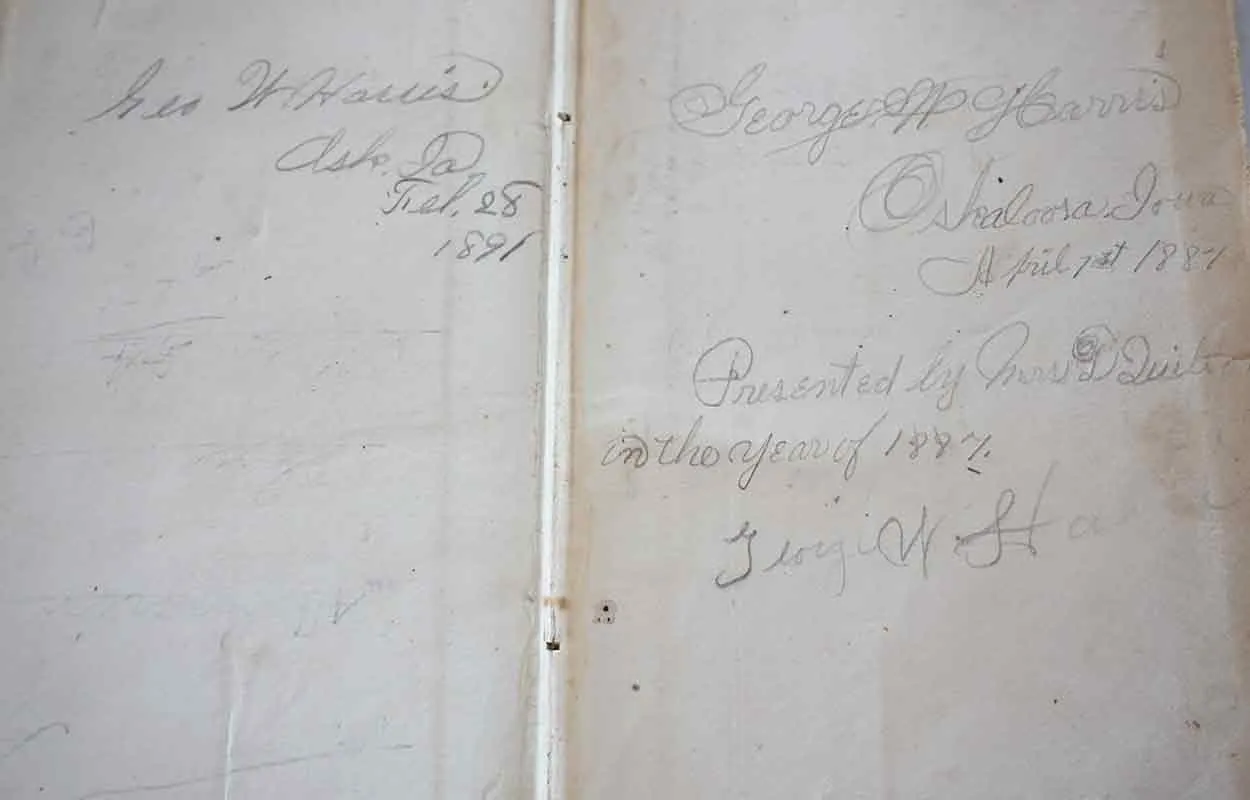 Geo W Harris.
Osk. Ia
Feb. 28
1891
George W Harris
Oskaloosa, Iowa
April 1st 1887
Presented by Mrs D
in the year of 1887.
George W. Ha